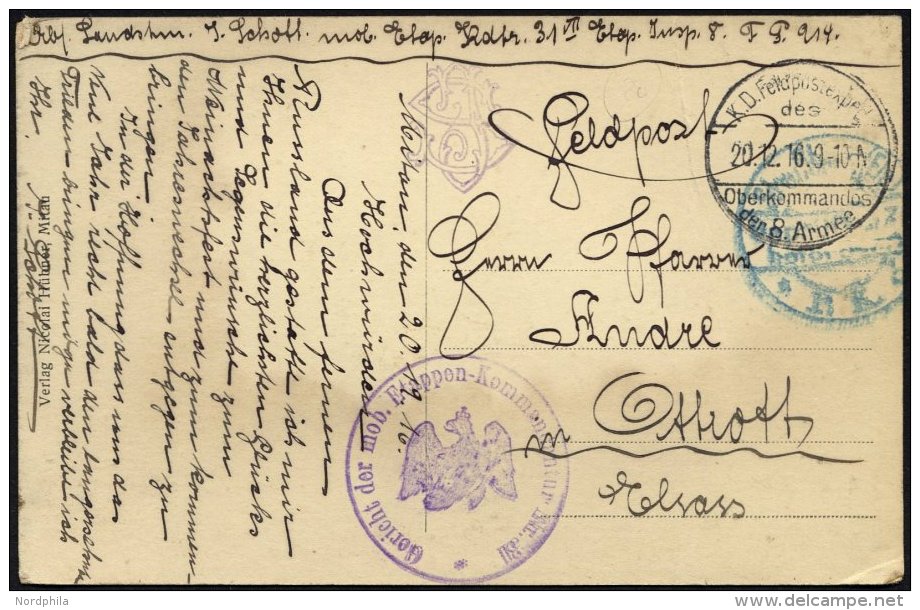 Abs. Landstm. J. Schott. mob. Etap. Kdtr. 31 VII Etap. Insp. 8. F. P. 914.
Feldpost
K.D. Feldpostexped.
des
20.12.16. 9-10 A
Oberkommandos
der 8. Armee
Herrn Pfarrer
André
in Ottrott
Elsass
Gericht der mob. Etappen-Kommandantur Nr. 31
Mitau, den 20. 12. 16.
Hochwürden
Aus dem fernen
Russland gestatte ich mir
Ihnen die herzlichsten Glücks
und Segenswünsche zum
Weihnachtsfest und zum kommen-
den Jahreswechsel entgegen zu
bringen.
In der Hoffnung dass uns das
neue Jahr recht bald den langersehnten
Frieden bringen möge verbleibe ich
Ihr
J. Schott
Verlag Nikolai Hübner, Mitau
Nordphila
delcampe.net